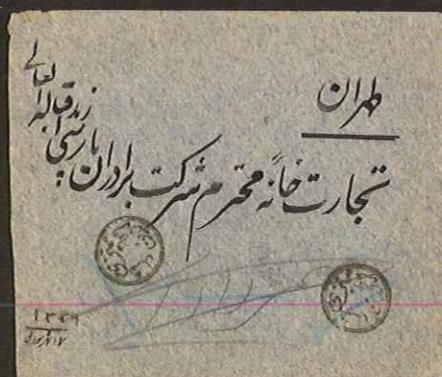 طهران
تجارت خانهٔ محترم شرکت برادران پارسی زید اقباله العالی
۱۳۴۹
۱۷